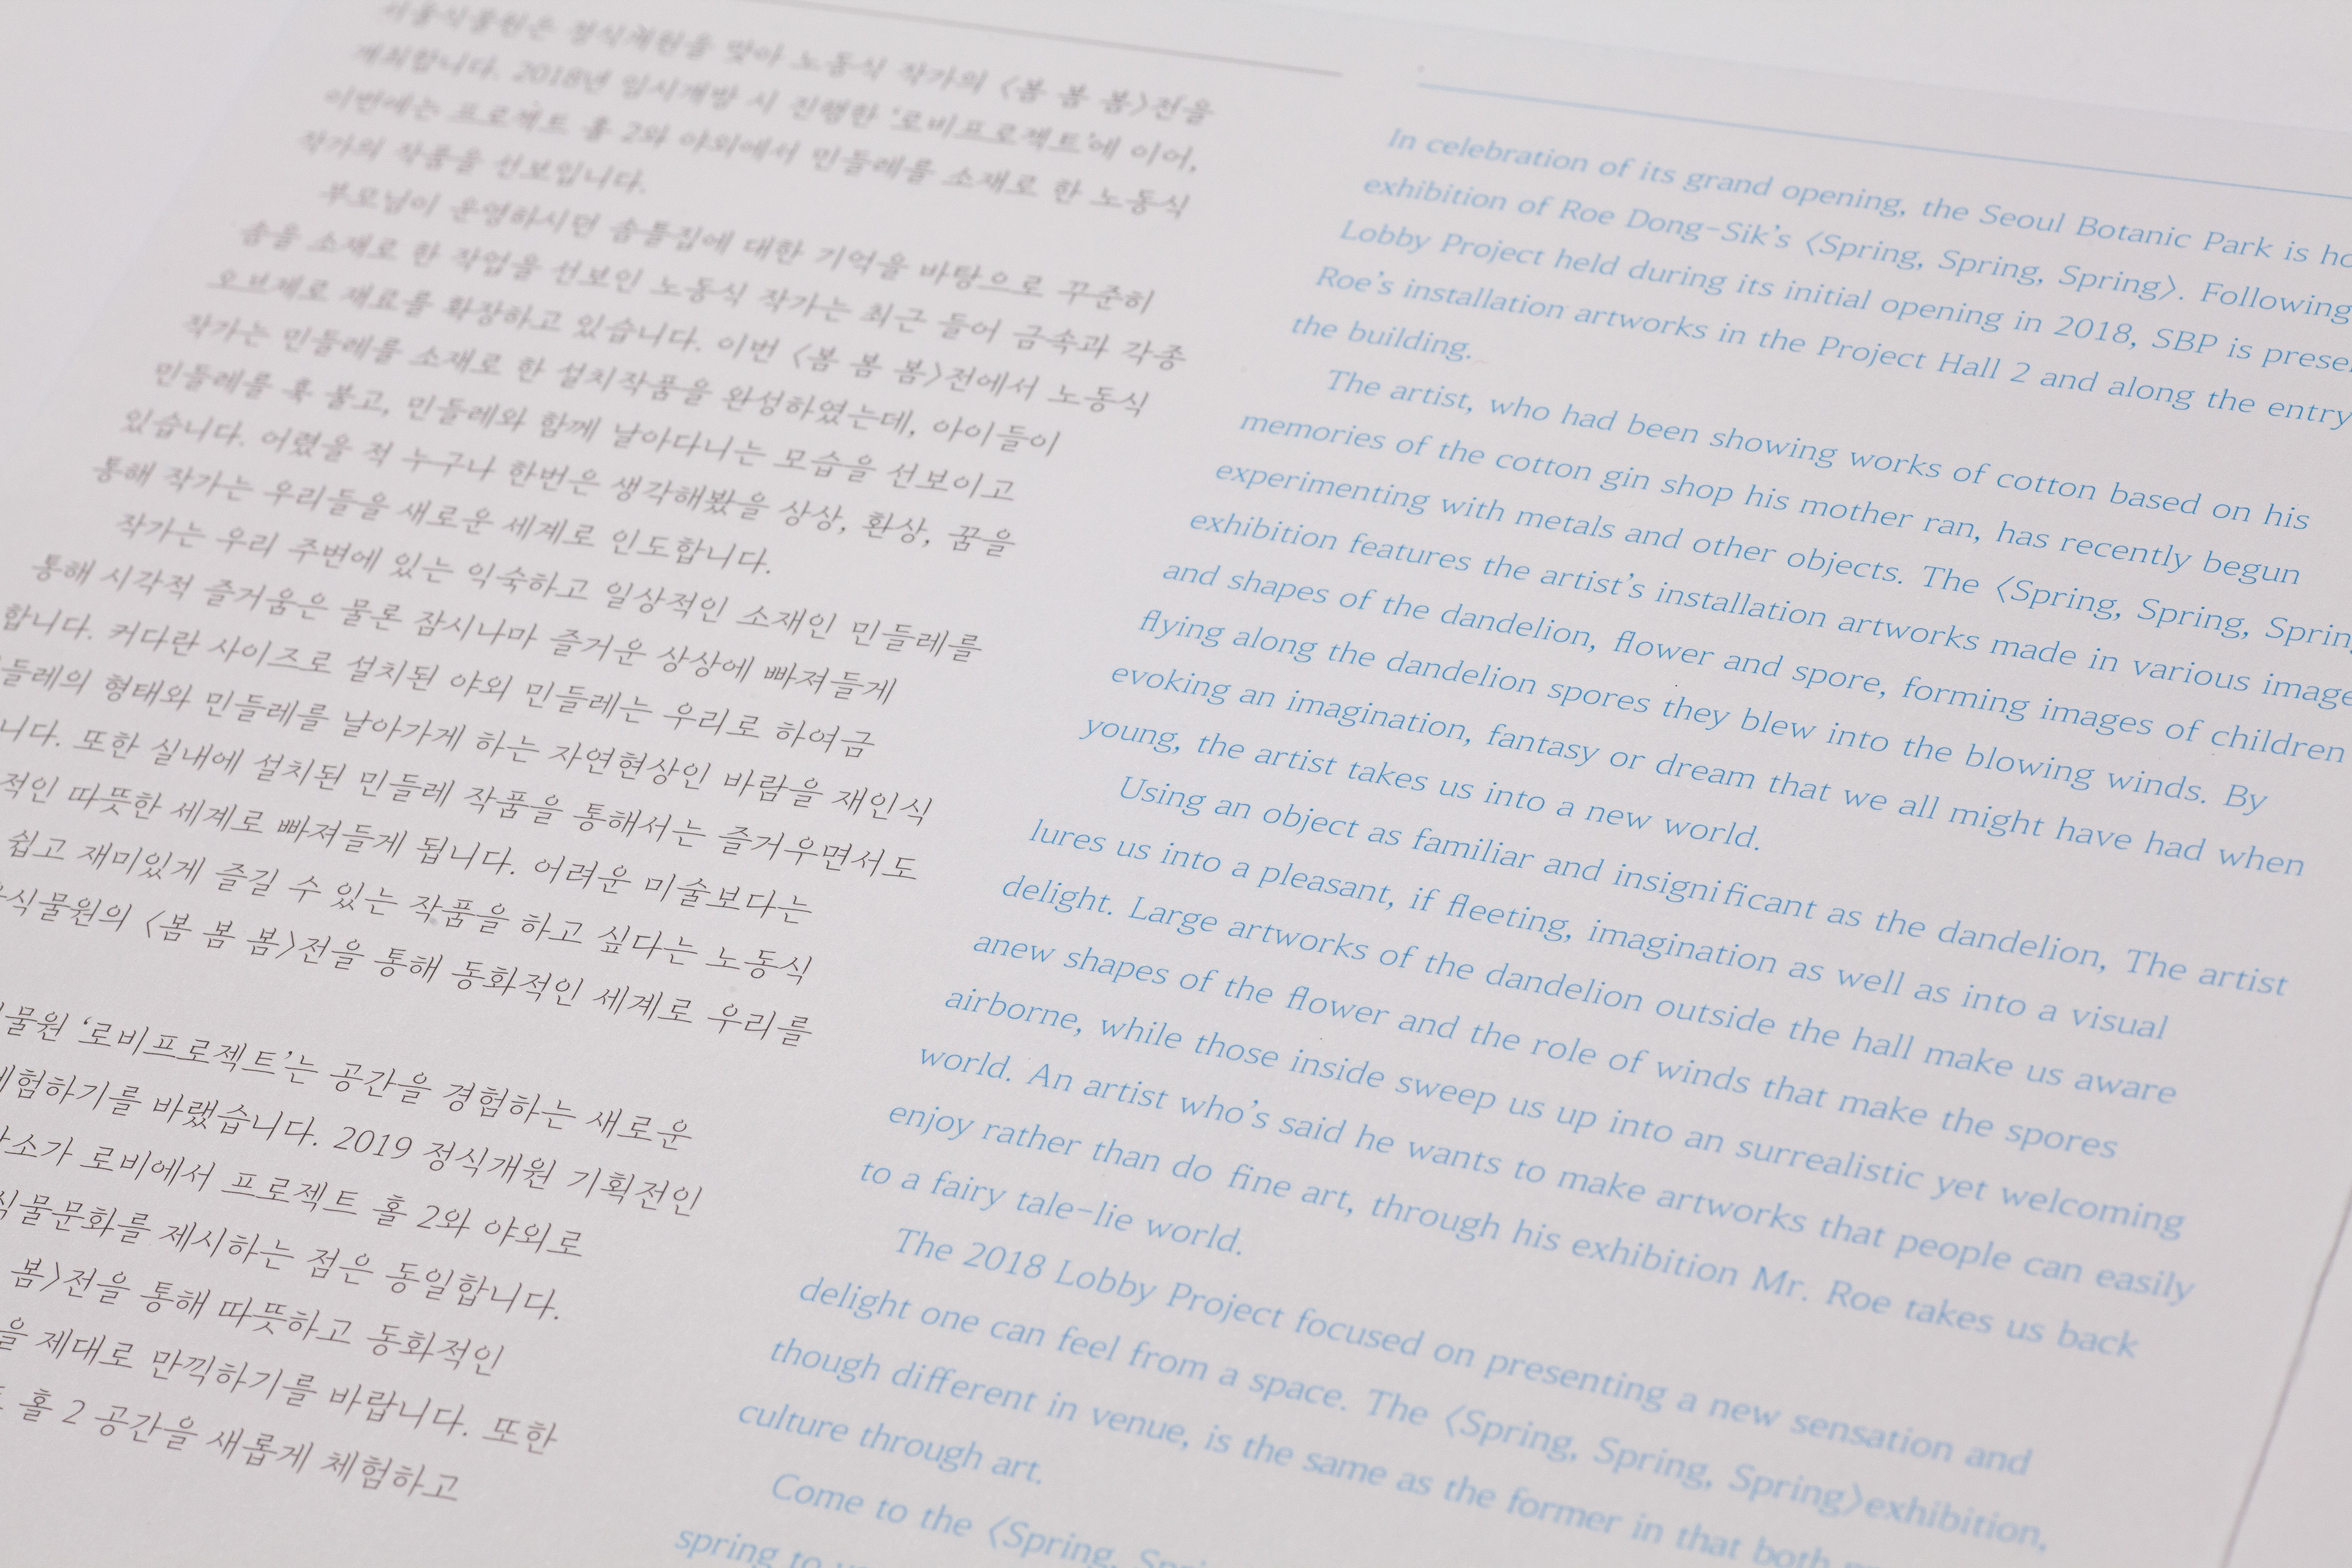 서울식물원은 정식개원을 맞아 노동식 작가의 〈봄 봄 봄〉전을
개최합니다. 2018년 임시개방 시 진행한 ‘로비프로젝트’에 이어,
이번에는 프로젝트 홀 2와 야외에서 민들레를 소재로 한 노동식
작가의 작품을 선보입니다.
부모님이 운영하시던 솜틀집에 대한 기억을 바탕으로 꾸준히
솜을 소재로 한 작업을 선보인 노동식 작가는 최근 들어 금속과 각종
오브제로 재료를 확장하고 있습니다. 이번 〈봄 봄 봄〉전에서 노동식
작가는 민들레를 소재로 한 설치작품을 완성하였는데, 아이들이
민들레를 훅 불고, 민들레와 함께 날아다니는 모습을 선보이고
있습니다. 어렸을 적 누구나 한번은 생각해봤을 상상, 환상, 꿈을
통해 작가는 우리들을 새로운 세계로 인도합니다.
작가는 우리 주변에 있는 익숙하고 일상적인 소재인 민들레를
통해 시각적 즐거움은 물론 잠시나마 즐거운 상상에 빠져들게
합니다. 커다란 사이즈로 설치된 야외 민들레는 우리로 하여금
들레의 형태와 민들레를 날아가게 하는 자연현상인 바람을 재인식
니다. 또한 실내에 설치된 민들레 작품을 통해서는 즐거우면서도
적인 따뜻한 세계로 빠져들게 됩니다. 어려운 미술보다는
쉽고 재미있게 즐길 수 있는 작품을 하고 싶다는 노동식
식물원의 〈봄 봄 봄〉전을 통해 동화적인 세계로 우리를
물원 ‘로비프로젝트’는 공간을 경험하는 새로운
험하기를 바랬습니다. 2019 정식개원 기획전인
소가 로비에서 프로젝트 홀 2와 야외로
식물문화를 제시하는 점은 동일합니다.
봄〉전을 통해 따뜻하고 동화적인
을 제대로 만끽하기를 바랍니다. 또한
홀 2 공간을 새롭게 체험하고
In celebration of its grand opening, the Seoul Botanic Park is ho
exhibition of Roe Dong-Sik’s 〈Spring, Spring, Spring〉. Following
Lobby Project held during its initial opening in 2018, SBP is prese
Roe’s installation artworks in the Project Hall 2 and along the entry
the building.
The artist, who had been showing works of cotton based on his
memories of the cotton gin shop his mother ran, has recently begun
experimenting with metals and other objects. The 〈Spring, Spring, Spring
exhibition features the artist’s installation artworks made in various image
and shapes of the dandelion, flower and spore, forming images of children
flying along the dandelion spores they blew into the blowing winds. By
evoking an imagination, fantasy or dream that we all might have had when
young, the artist takes us into a new world.
Using an object as familiar and insignificant as the dandelion, The artist
lures us into a pleasant, if fleeting, imagination as well as into a visual
delight. Large artworks of the dandelion outside the hall make us aware
anew shapes of the flower and the role of winds that make the spores
airborne, while those inside sweep us up into an surrealistic yet welcoming
world. An artist who’s said he wants to make artworks that people can easily
enjoy rather than do fine art, through his exhibition Mr. Roe takes us back
to a fairy tale-lie world.
The 2018 Lobby Project focused on presenting a new sensation and
delight one can feel from a space. The 〈Spring, Spring, Spring〉exhibition,
though different in venue, is the same as the former in that both
culture through art.
Come to the 〈Spring,
spring to